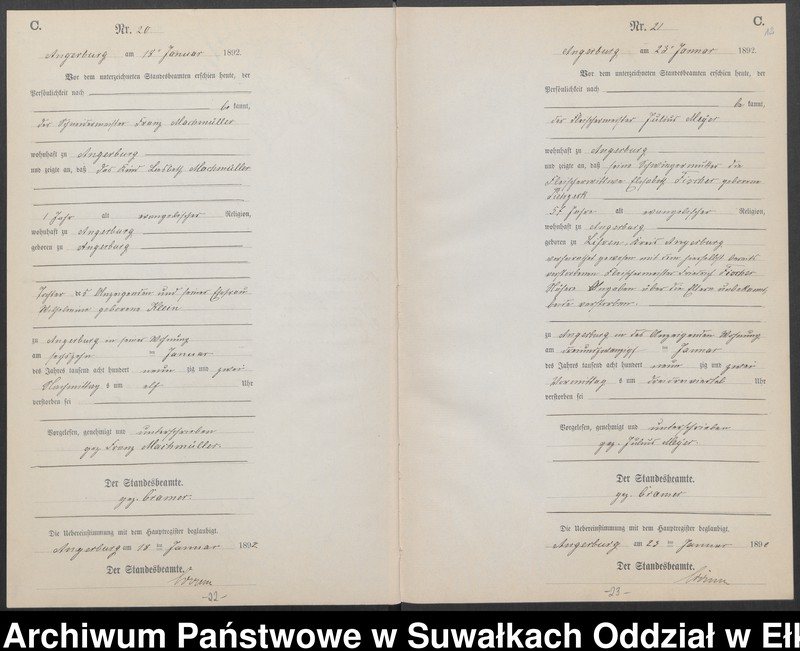 C.
Nr. 20
Angerburg am 18' Januar 1892.
Vor dem unterzeichneten Standesbeamten erschien heute, der
Persönlichkeit nach
be kannt,
der Schneidermeister Franz Machmüller
wohnhaft zu Angerburg
und zeigte an, daß das Kind Machmüller
1 Jahr alt evangelischer Religion,
wohnhaft zu Angerburg
geboren zu Angerburg
Tochter des Anzeigenden und seiner Ehefrau
Wilhelmine geborene Klein
zu Angerburg in seiner Wohnung
am sechszehn ten Januar
des Jahres tausend acht hundert neun zig und zwei
Nachmittag s um elf Uhr
verstorben sei
Vorgelesen, genehmigt und unterschrieben
gez. Franz Machmüller.
Der Standesbeamte.
gez. Cramer.
Die Uebereinstimmung mit dem Hauptregister beglaubigt.
Angerburg am 18 ten Januar 1892.
Der Standesbeamte.
-22-
C.
Nr. 21
Angerburg am 23' Januar 1892.
Vor dem unterzeichneten Standesbeamten erschien heute, der
Persönlichkeit nach
be kannt,
der Fleischermeister Julius Meyer
wohnhaft zu Angerburg
und zeigte an, daß seine Schwiegermutter die
Fleischerwittwe Elisabeth Fischer geborene
57 Jahre alt evangelischer Religion,
wohnhaft zu Angerburg
geboren zu Kreis Angerburg
verheirathet gewesen mit dem hierselbst bereits
verstorbenen Fleischermeister Friedrich Fischer
Nähere Angaben über die Eltern unbekannt,
beide verstorben.
zu Angerburg in des Anzeigenden Wohnung
am dreiundzwanzigs ten Januar
des Jahres tausend acht hundert neun zig und zwei
Vormittag s um dreidreiviertel Uhr
verstorben sei
Vorgelesen, genehmigt und unterschrieben
gez. Julius Meyer
Der Standesbeamte.
gez. Cramer
Die Uebereinstimmung mit dem Hauptregister beglaubigt.
Angerburg am 23 ten Januar 1892
Der Standesbeamte.
-23-
Archiwum Państwowe w Suwałkach Oddział w Ełk